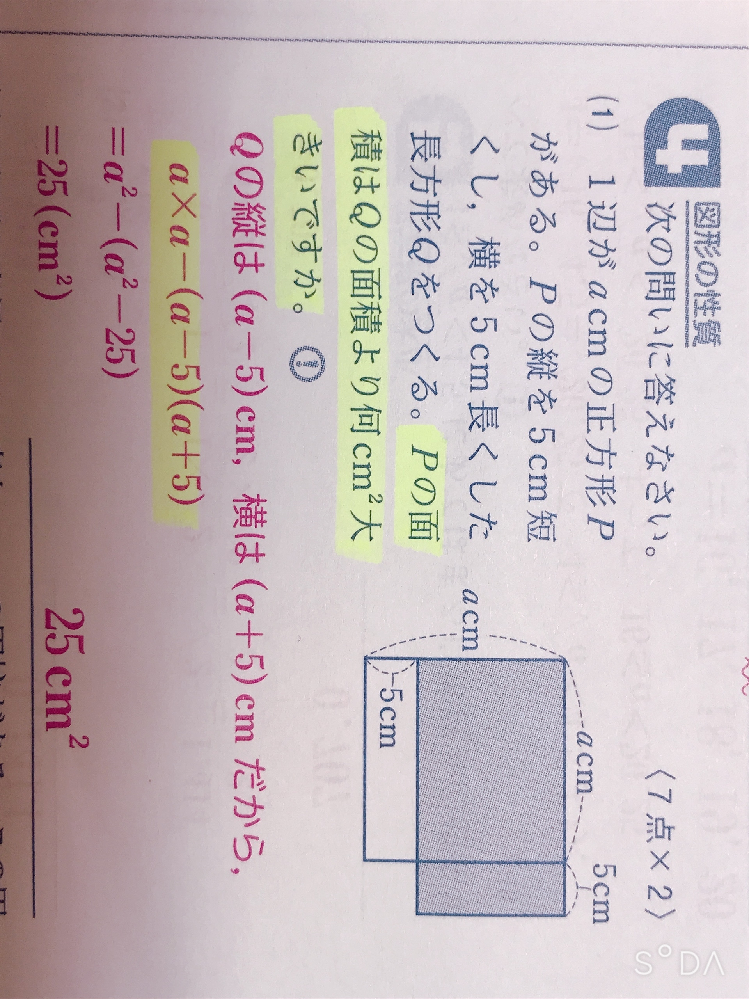 4 図形の性質
次の問いに答えなさい。 〈7点×2〉
(1) 1辺がacmの正方形P
がある。Pの縦を5cm短
くし，横を5cm長くした
長方形Qをつくる。Pの面
積はQの面積より何cm²大
きいですか。
acm
5cm
acm
5cm
Qの縦は(a－5)cm，横は(a＋5)cmだから，
a×a－(a－5)(a＋5)
＝a²－(a²－25)
＝25(cm²)
25cm²
SODA